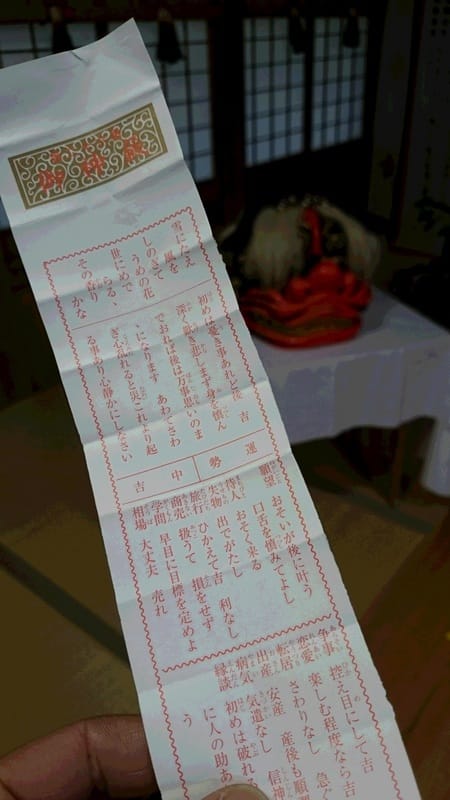 雪にたえ
風を
しのぎて
うめの花
世にめで
らるゝ
その香りかな
初めは憂き事あれど後吉
深く歎き悲しまず身を慎ん
でおれば後は万事思いのま
ゝになります あわてさわ
ぎ心乱れると災これより起
る事あり心静かにしなさい
運勢
中吉
願望 おそいが後に叶う
口舌を慎みてよし
待人 おそく来る
失物 出でがたし
旅行 ひかえて吉 利なし
商売 扱うて 損をせず
学問 早目に目標を定めよ
相場 大丈夫 売れ
争事 控え目にして吉
恋愛 楽しむ程度なら吉
転居 さわりなし 急
出産 安産 産後も順
病気 気遣なし 信神
縁談 初めは破れ
に人の助あ
う